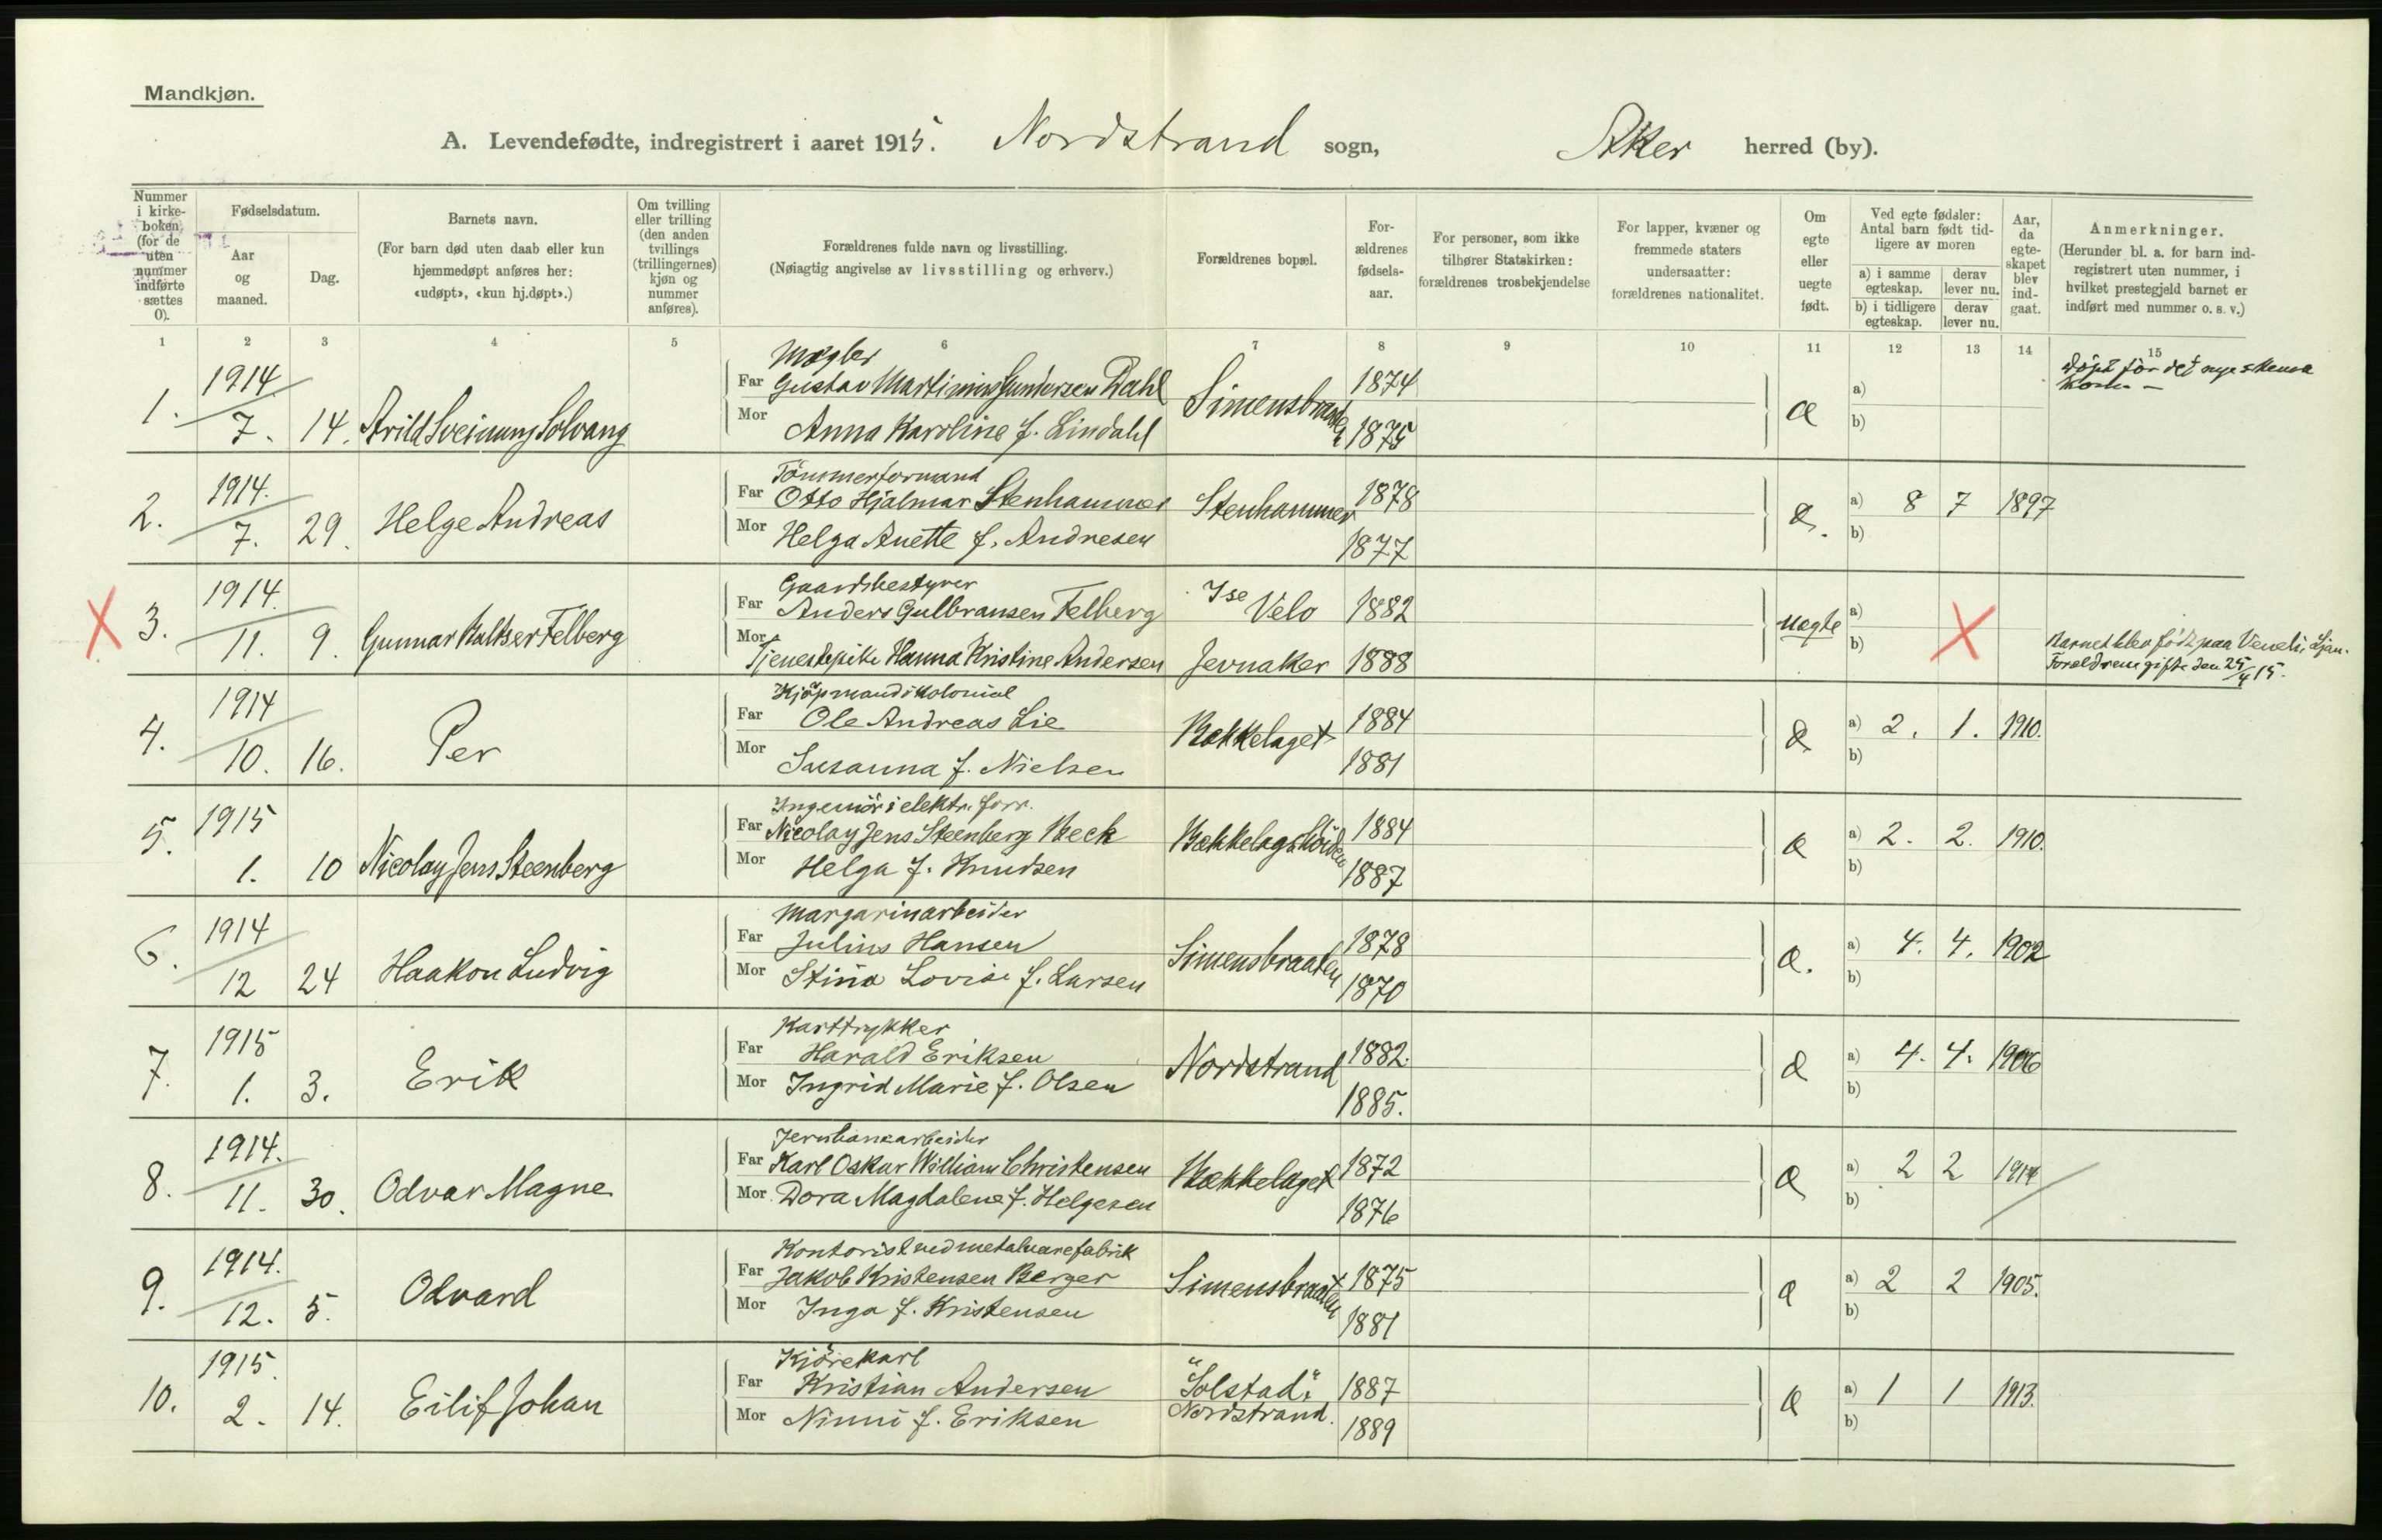 Mandkjøn.
A. Levendefødte, indregistrert i aaret 1915. Nordstrand sogn, Aker herred (by).
Nummer i kirke-boken (for de uten nummer indførte sættes 0).
Fødselsdatum.
Aar og maaned.
Dag.
Barnets navn.
(For barn død uten daab eller kun hjemmedøpt anføres her: «udøpt», «kun hj.døpt».)
Om tvilling eller trilling (den anden tvillings (trillingernes) kjøn og nummer anføres).
Forældrenes fulde navn og livsstilling.
(Nøiagtig angivelse av livsstilling og erhverv.)
Forældrenes bopæl.
For-ældrenes fødsels-aar.
For personer, som ikke tilhører Statskirken: forældrenes trosbekjendelse
For lapper, kvæner og fremmede staters undersaatter: forældrenes nationalitet.
Om egte eller uegte født.
Ved egte fødsler: Antal barn født tid-ligere av moren
a) i samme egteskap.
derav lever nu.
b) i tidligere egteskap.
derav lever nu.
Aar, da egte-skapet blev ind-gaat.
Anmerkninger.
(Herunder bl. a. for barn ind-registrert uten nummer, i hvilket prestegjeld barnet er indført med nummer o. s. v.)
1 2 3 4 5 6 7 8 9 10 11 12 13 14 15
Mægler
1. 1914 7. 14. Arild Sveinung Solvang
Far Gustav Martinius Gundersen Dahl Simensbraaten 1874
Mor Anna Karoline f. Lindahl 1875
æ a) b)
Døpt før det nye skema kom. –
Tömmerformand
2. 1914. 7. 29. Helge Andreas
Far Otto Hjalmar Stenhammer Stenhammer 1878
Mor Helga Anette f. Andresen 1877
æ. a) 8 7 1897 b)
Gaardsbestyrer
X 3. 1914. 11. 9. Gunnar Baltser Felberg
Far Anders Gulbransen Felberg Velo 1882
Mor Tjenestepike Hanna Kristine Andersen Jevnaker 1888
uægte a) b) X
Barnet blev født paa Ljan.
Forældrene gifte den 25/4 15.
Kjöpmand i kolonial
4. 1914 10. 16. Per
Far Ole Andreas Lie Bækkelaget 1884
Mor Susanna f. Nielsen 1881
æ a) 2. 1. 1910. b)
Ingeniör i elektr. forr.
5. 1915 1. 10 Nicolay Jens Steenberg
Far Nicolay Jens Steenberg Beck Bækkelagshöiden 1884
Mor Helga f. Knudsen 1887
æ a) 2. 2. 1910. b)
Margarinarbeider
6. 1914 12 24 Haakon Ludvig
Far Julius Hansen Simensbraaten 1878
Mor Stina Lovise f. Larsen 1870
æ. a) 4. 4. 1902 b)
Karttrykker
7. 1915 1. 3. Erik
Far Harald Eriksen Nordstrand 1882.
Mor Ingrid Marie f. Olsen 1885.
æ a) 4. 4. 1906 b)
Jernbanearbeider
8. 1914. 11. 30. Odvar Magne
Far Karl Oskar William Christensen Bækkelaget 1872
Mor Dora Magdalene f. Helgesen 1876
æ a) 2 2 1914 b)
Kontorist ved metalvarefabrik
9. 1914. 12. 5. Odvard
Far Jakob Kristensen Berger Simensbraaten 1875
Mor Inga f. Kristensen 1881
æ a) 2 2 1905. b)
Kjörekarl
10. 1915. 2. 14. Eilif Johan
Far Kristian Andersen "Solstad" 1887
Mor Ninni f. Eriksen Nordstrand. 1889
æ a) 1 1 1913. b)